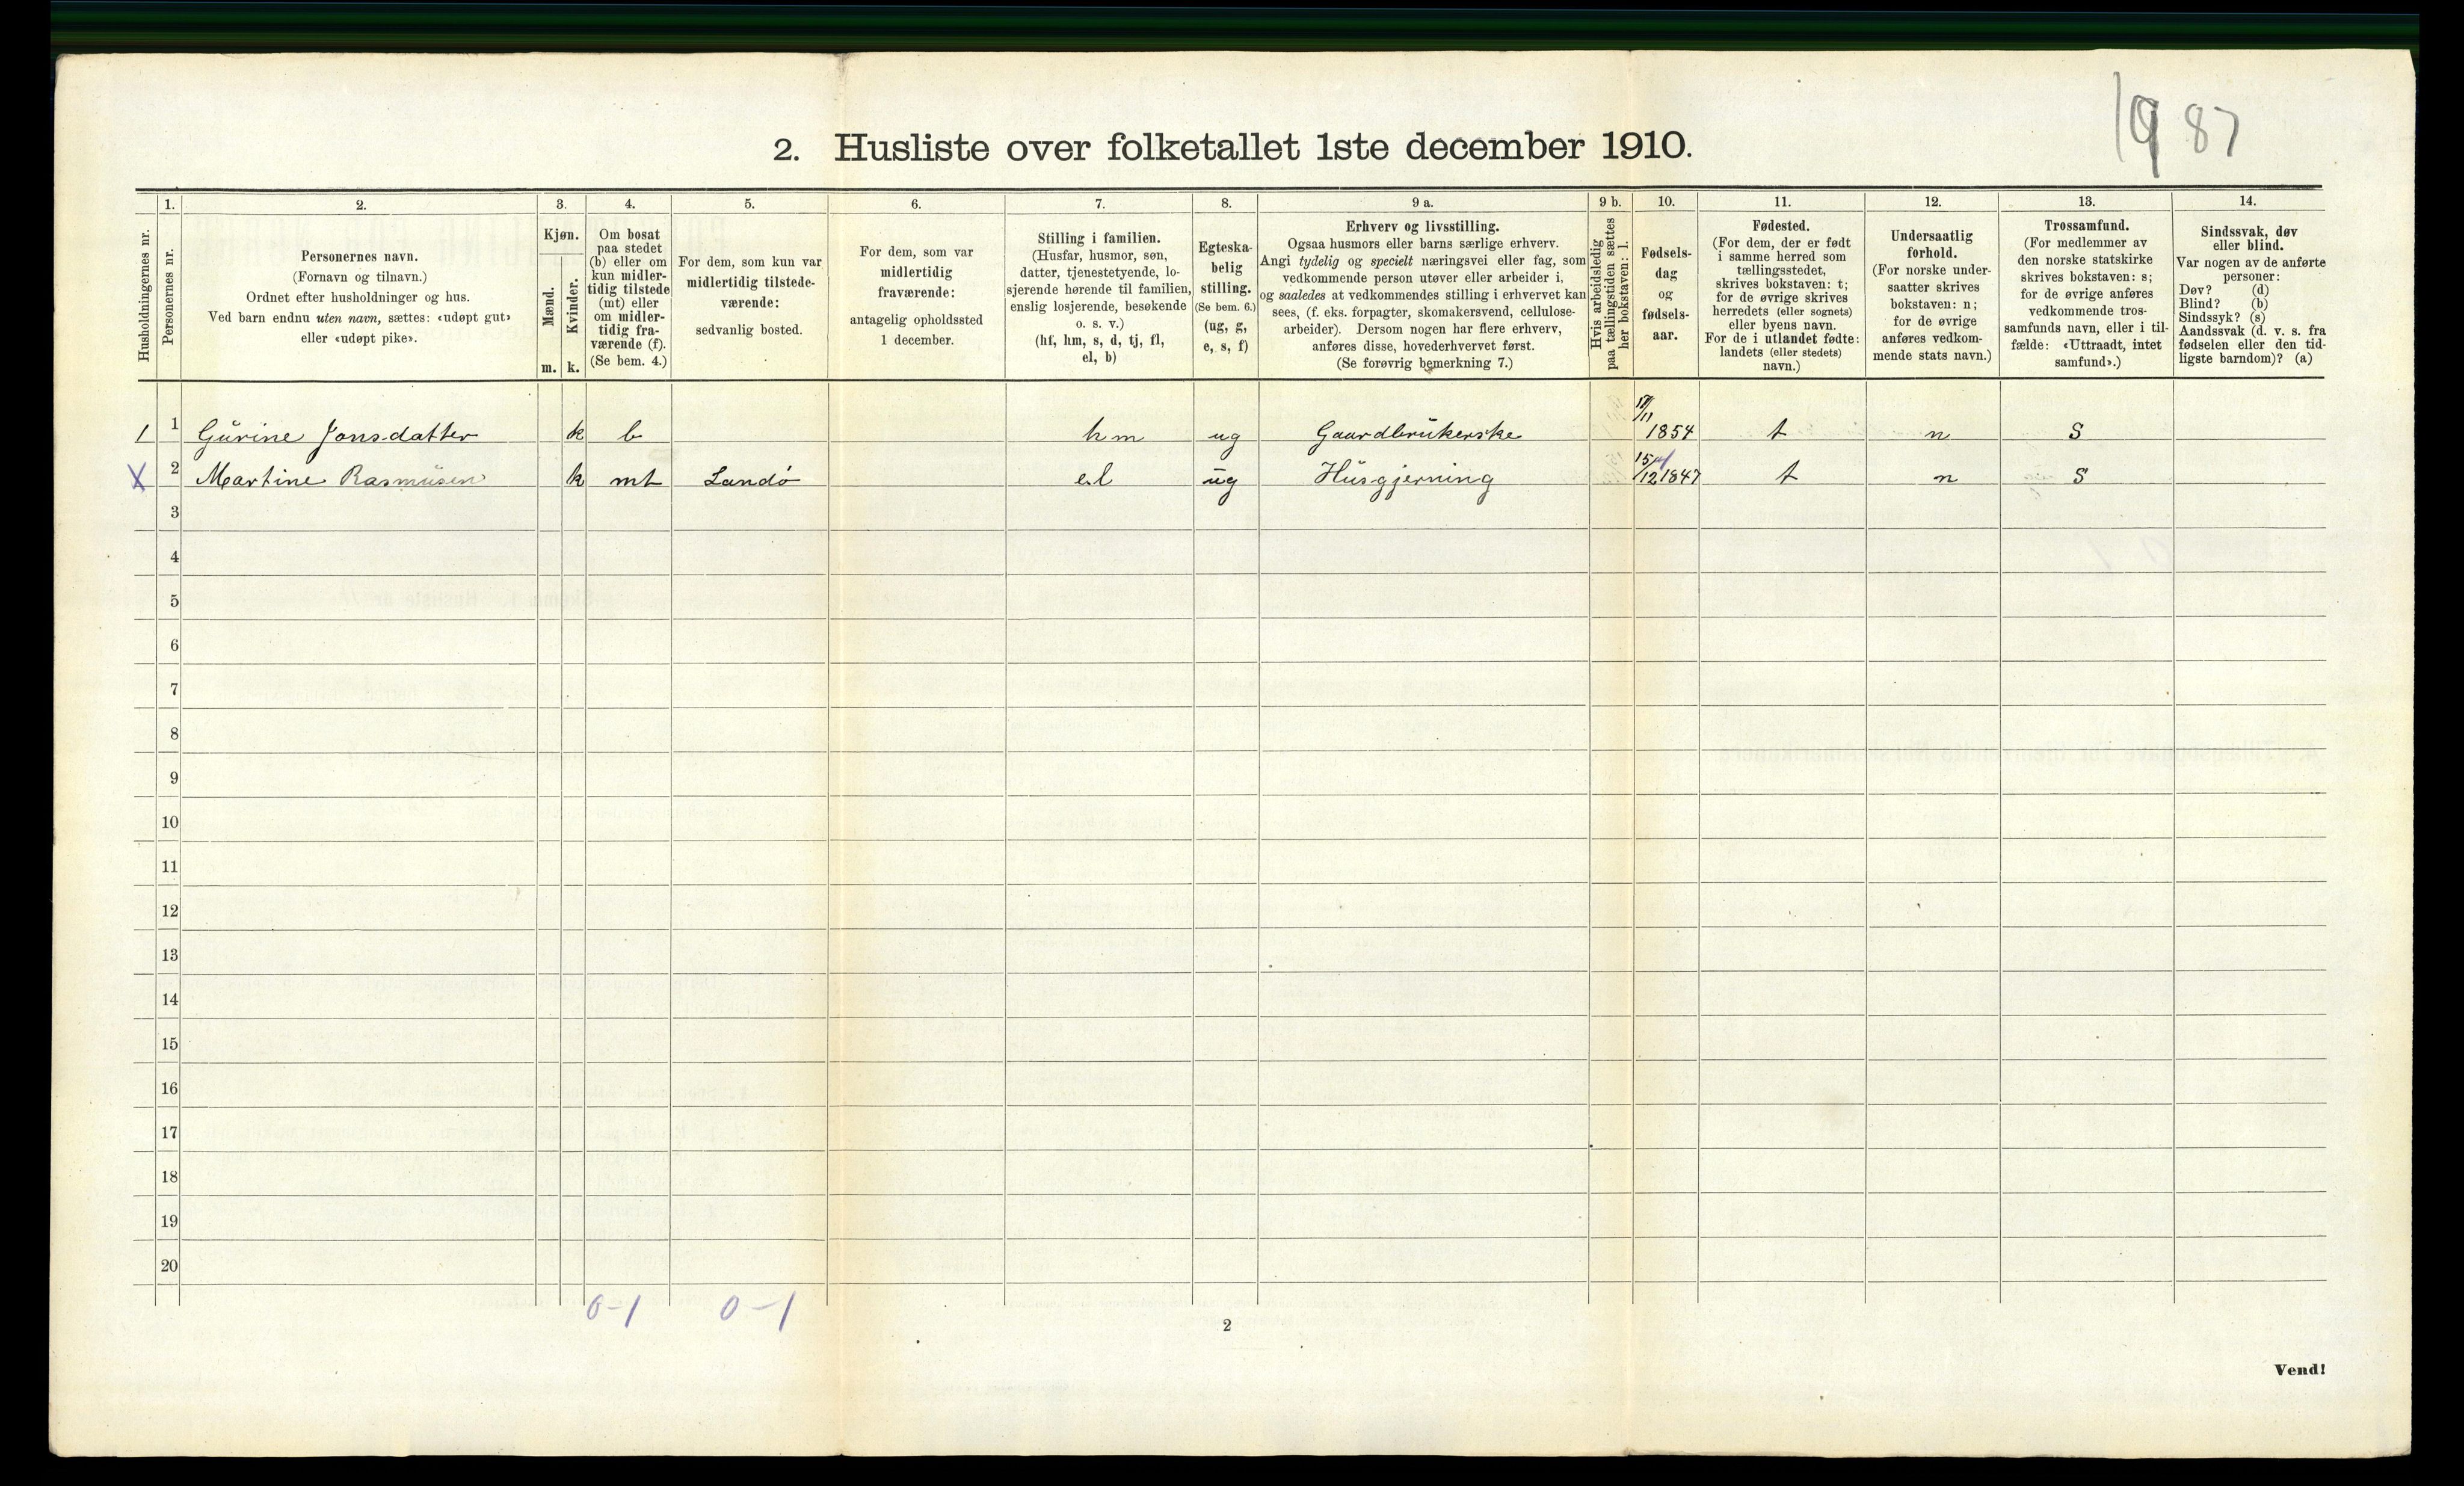 1987
2. Husliste over folketallet 1ste december 1910.
Husholdningernes nr.
1.
Personernes nr.
2.
Personernes navn.
(Fornavn og tilnavn.)
Ordnet efter husholdninger og hus.
Ved barn endnu uten navn, sættes: «udøpt gut»
eller «udøpt pike».
3.
Kjøn.
Mænd.
m.
Kvinder.
k.
4.
Om bosat
paa stedet
(b) eller om
kun midler-
tidig tilstede
(mt) eller
om midler-
tidig fra-
værende (f).
(Se bem. 4.)
5.
For dem, som kun var
midlertidig tilstede-
værende:
sedvanlig bosted.
6.
For dem, som var
midlertidig
fraværende:
antagelig opholdssted
1 december.
7.
Stilling i familien.
(Husfar, husmor, søn,
datter, tjenestetyende, lo-
sjerende hørende til familien,
enslig losjerende, besøkende
o. s. v.)
(hf, hm, s, d, tj, fl,
el, b)
8.
Egteska-
belig
stilling.
(Se bem. 6.)
(ug, g,
e, s, f)
9 a.
Erhverv og livsstilling.
Ogsaa husmors eller barns særlige erhverv.
Angi tydelig og specielt næringsvei eller fag, som
vedkommende person utøver eller arbeider i,
og saaledes at vedkommendes stilling i erhvervet kan
sees, (f. eks. forpagter, skomakersvend, cellulose-
arbeider). Dersom nogen har flere erhverv,
anføres disse, hovederhvervet først.
(Se forøvrig bemerkning 7.)
9 b.
Hvis arbeidsledig
paa tællingstiden sættes
her bokstaven: l.
10.
Fødsels-
dag
og
fødsels-
aar.
11.
Fødested.
(For dem, der er født
i samme herred som
tællingsstedet,
skrives bokstaven: t;
for de øvrige skrives
herredets (eller sognets)
eller byens navn.
For de i utlandet fødte:
landets (eller stedets)
navn.)
12.
Undersaatlig
forhold.
(For norske under-
saatter skrives
bokstaven: n;
for de øvrige
anføres vedkom-
mende stats navn.)
13.
Trossamfund.
(For medlemmer av
den norske statskirke
skrives bokstaven: s;
for de øvrige anføres
vedkommende tros-
samfunds navn, eller i til-
fælde: «Uttraadt, intet
samfund».)
14.
Sindssvak, døv
eller blind.
Var nogen av de anførte
personer:
Døv? (d)
Blind? (b)
Sindssyk? (s)
Aandssvak (d. v. s. fra
fødselen eller den tid-
ligste barndom)? (a)
1 1 Gurine Jonsdatter k b hm ug Gaardbrukerske 17/11 1854 t n S
X 2 Martine Rasmusen k mt Landö el ug Husgjerning 15/12 1847 t n S
3
4
5
6
7
8
9
10
11
12
13
14
15
16
17
18
19
20
0-1 0-1
2
Vend!